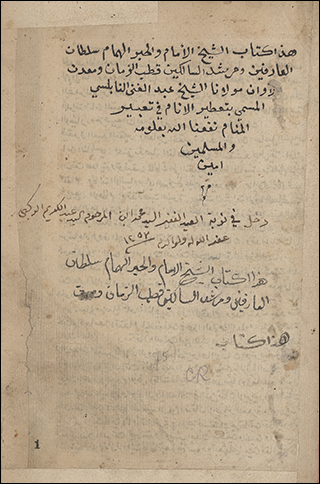 هذا كتاب الشيخ الامام والحبر الهمام سلطان
العارفين ومرشد السالكين قطب الزمان ومعدن
الاوان مولانا الشيخ عبد الغنى النابلسي
المسمى بتعطير الانام في تعبير
المنام نفعنا الله بعلومه
والمسلمين
امين
م
دخل في نوبة العبد الفقير السيد محمد ابن المرحوم السيد عبد الكريم
غفر الله له ولوالديه ١٢٥٧
هذا كتاب الشيخ الامام والحبر الهمام سلطان
العارفين ومرشد السالكين قطب الزمان ومعدن
هذا كتاب
75
CR
1